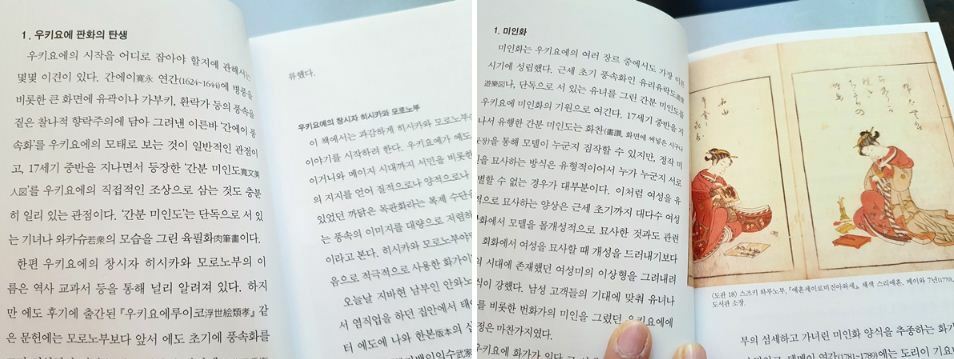 1. 우키요에 판화의 탄생
우키요에의 시작을 어디로 잡아야 할지에 관해서는
몇몇 이견이 있다. 간에이寬永 연간(1624~1644)에 병풍을
비롯한 큰 화면에 유곽이나 가부키, 환락가 등의 풍속을
짙은 찰나적 향락주의에 담아 그려낸 이른바 '간에이 풍
속화'를 우키요에의 모태로 보는 것이 일반적인 관점이
고, 17세기 중반을 지나면서 등장한 '간분 미인도寬文美
人図'를 우키요에의 직접적인 조상으로 삼는 것도 충분
히 일리 있는 관점이다. '간분 미인도'는 단독으로 서 있
는 기녀나 와카슈若衆의 모습을 그린 육필화肉筆畫이다.
한편 우키요에의 창시자 히시카와 모로노부의 이
름은 역사 교과서 등을 통해 널리 알려져 있다. 하지
만 에도 후기에 출간된 『우키요에루이코浮世絵類考』 같
은 문헌에는 모로노부보다 앞서 에도 초기에 풍속화를
류했다.
우키요에의 창시자 히시카와 모로노부
이 책에서는 과감하게 히시카와 모로노
이야기를 시작하려 한다. 우키요에가 에도
이거나와 메이지 시대까지 서민을 비롯한
의 지지를 얻어 질적으로나 양적으로나
있었던 까닭은 목판화라는 복제 수단
는 풍속의 이미지를 대량으로 저렴하
이라고 본다. 히시카와 모로노부야
음으로 적극적으로 사용한 화가이
오늘날 지바현 남부인 안와노
서 염직업을 하던 집안에서 태
터 에도에 나와 한본版本의 삽
1. 미인화
미인화는 우키요에의 여러 장르 중에서도 가장
시기에 성립했다. 근세 초기 풍속화인 유리유락도
遊樂図나, 단독으로 서 있는 유녀를 그린 간분 미인도를
우키요에 미인화의 기원으로 여긴다. 17세기 중반을
나서 유행한 간분 미인도는 화찬(畫讚, 화면에 써넣은 시구나
을 통해 모델이 누군지 짐작할 수 있지만, 정작 미
을 묘사하는 방식은 유형적이어서 누가 누구지 서로
별할 수 없는 경우가 대부분이다. 이처럼 여성을 유
로 묘사하는 양상은 근세 초기까지 대다수 여성
화에서 모델을 몰개성적으로 묘사한 것과도 관련
회화에서 여성을 묘사할 때 개성을 드러내기보다
시대에 존재했던 여성미의 이상형을 그려내려
식이 강했다. 남성 고객들의 기대에 맞춰 유녀나
를 비롯한 번화가의 미인을 그렸던 우키요에에
정은 마찬가지였다.
우키요에 화가가 있다
(도판 18) 스즈키 하루노부,
도서관 소장.
부의 섬세하고 가녀린 미인화 양식을 추종하는 화가
(1781~1789)에는 도리이 기요